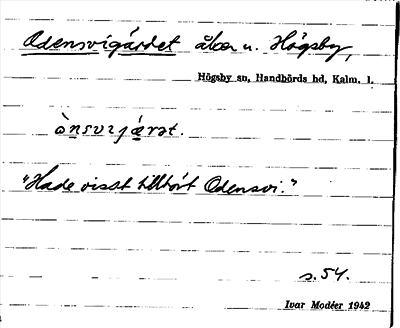 Odensvigärdet åker u. Högsby,
Högsby sn, Handbörds hd, Kalm. l.
ònsvɩjǽrət.
"Hade visst tillhört Odensvi."
s. 54.
Ivar Modéer 1942